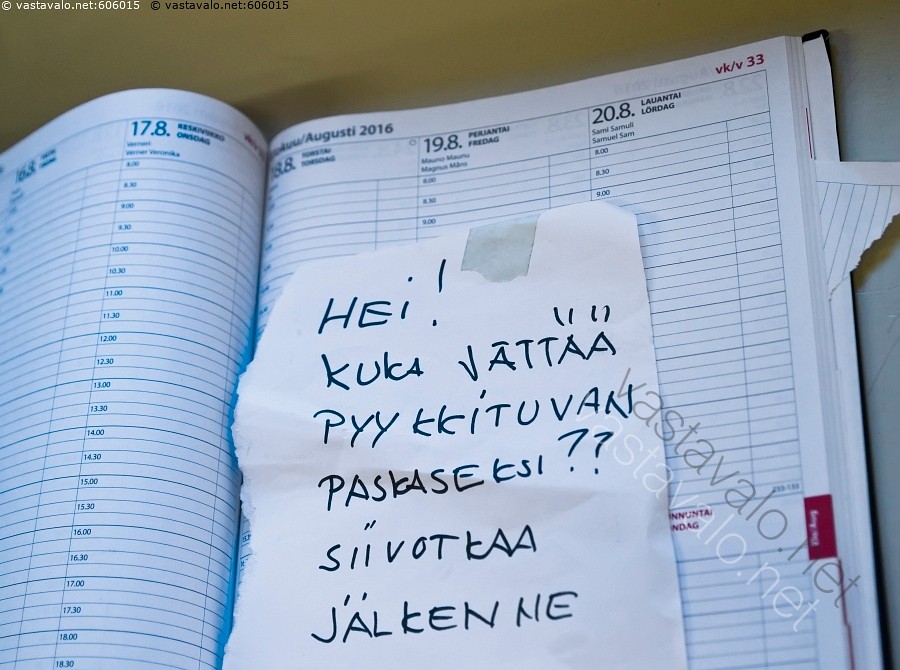 © vastavalo.net:606015 © vastavalo.net:606015
vk/v 33
17.8. KESKIVIIKKO
ONSDAG
Verneri
Verner Veronika
8.00
8.30
9.00
10.00
10.30
11.00
11.30
12.00
12.30
13.00
13.30
14.00
14.30
15.00
15.30
16.00
16.30
17.00
17.30
18.00
18.30
/Augusti 2016
TORSTAI
TORSDAG
19.8. PERJANTAI
FREDAG
Mauno Maunu
Magnus Måns
8.00
8.30
9.00
20.8. LAUANTAI
LÖRDAG
Sami Samuli
Samuel Sam
8.00
8.30
9.00
HEI!
KUKA JÄTTÄÄ
PYYKKITUVAN
PASKASEKSI??
SIIVOTKAA
JÄLKENNE
vastavalo.net
vastavalo.net